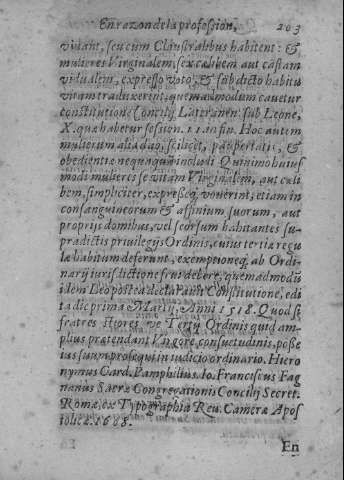 En razon de la profession, 203
vivant, seu cum Claustralibus habitent: &
mulieres Virginalem, seu cœlibem aut castam
vidualem, expresso voto, & sub dicto habitu
vitam traduxerint, quemadmodum cavetur
constitutione Concilij Lateranen. sub Leone,
X. quæ habetur session. 11. in fin. Hoc autem
mulierum alia duo, scilicet, paupertatis, &
obedientiæ nequaquam includi. Quinimo huius
modi mulieres se vitam Virginalem, aut cæli
bem, simpliciter, expressèq, voverint, etiam in
consanguineorum & affinium suorum, aut
proprijs domibus, vel seorsum habitantes su-
pradictis privilegijs Ordinis, cuius tertiæ regu
læ habitum deferunt, exemptioneq, ab Ordi-
narij iurisdictione frui debere, quemadmodũ
idem Leo postea declaravit Constitutione, edi
ta die prima Martij, Anni 1518. Quod si
fratres ve Tertij Ordinis quid am-
plius prætendant Vigore, consuetudinis, posse
tas suum prosequi in iudicio ordinario. Hiero
nymus Card. Pamphilius. Io. Franciscus Fag
nanus Sacræ Congregationis Concilij Secret.
Romæ, ex Typographia Reu. Cameræ Apos
tolicæ.
En